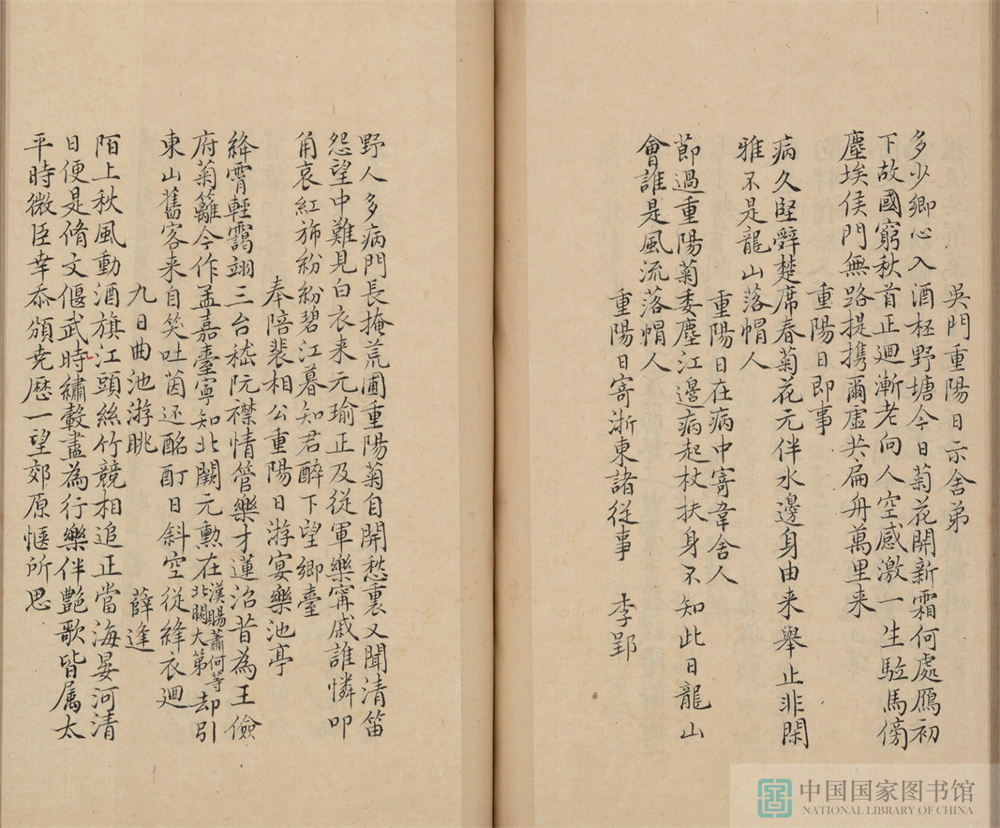 吳門重陽日示舍弟
多少鄉心入酒杯野塘今日菊花開新霜何處鴈初
下故國窮秋首正迴漸老向人空感激一生駈馬傍
塵埃侯門無路提携爾虛共扁舟萬里来
重陽日即事
病久堅辭楚席春菊花元伴水邊身由来舉止非閑
雅不是龍山落帽人
重陽日在病中寄韋舍人
節過重陽菊委塵江邊病起杖扶身不知此日龍山
會誰是風流落帽人
重陽日寄浙東諸從事 李郢
野人多病門長掩荒圃重陽菊自開愁裏又聞清笛
怨望中難見白衣来元瑜正及從軍樂甯戚誰憐叩
角哀紅斾紛紛碧江暮知君醉下望鄉臺
奉陪裴相公重陽日游宴樂池亭
絳霄輕靄翊三台嵇阮襟情管樂才蓮沼昔為王儉
府菊籬今作孟嘉臺寧知北闕元勲在漢賜蕭何等北闕大第却引
東山舊客来自笑吐茵还酩酊日斜空從絳衣迴
九日曲池游眺 薛逢
陌上秋風動酒旗江頭絲竹競相追正當海晏河清
日便是脩文偃武時繡轂盡為行樂伴艷歌皆属太
平時微臣幸忝頒堯歷一望郊原愜所思
中国国家图书馆
NATIONAL LIBRARY OF CHINA